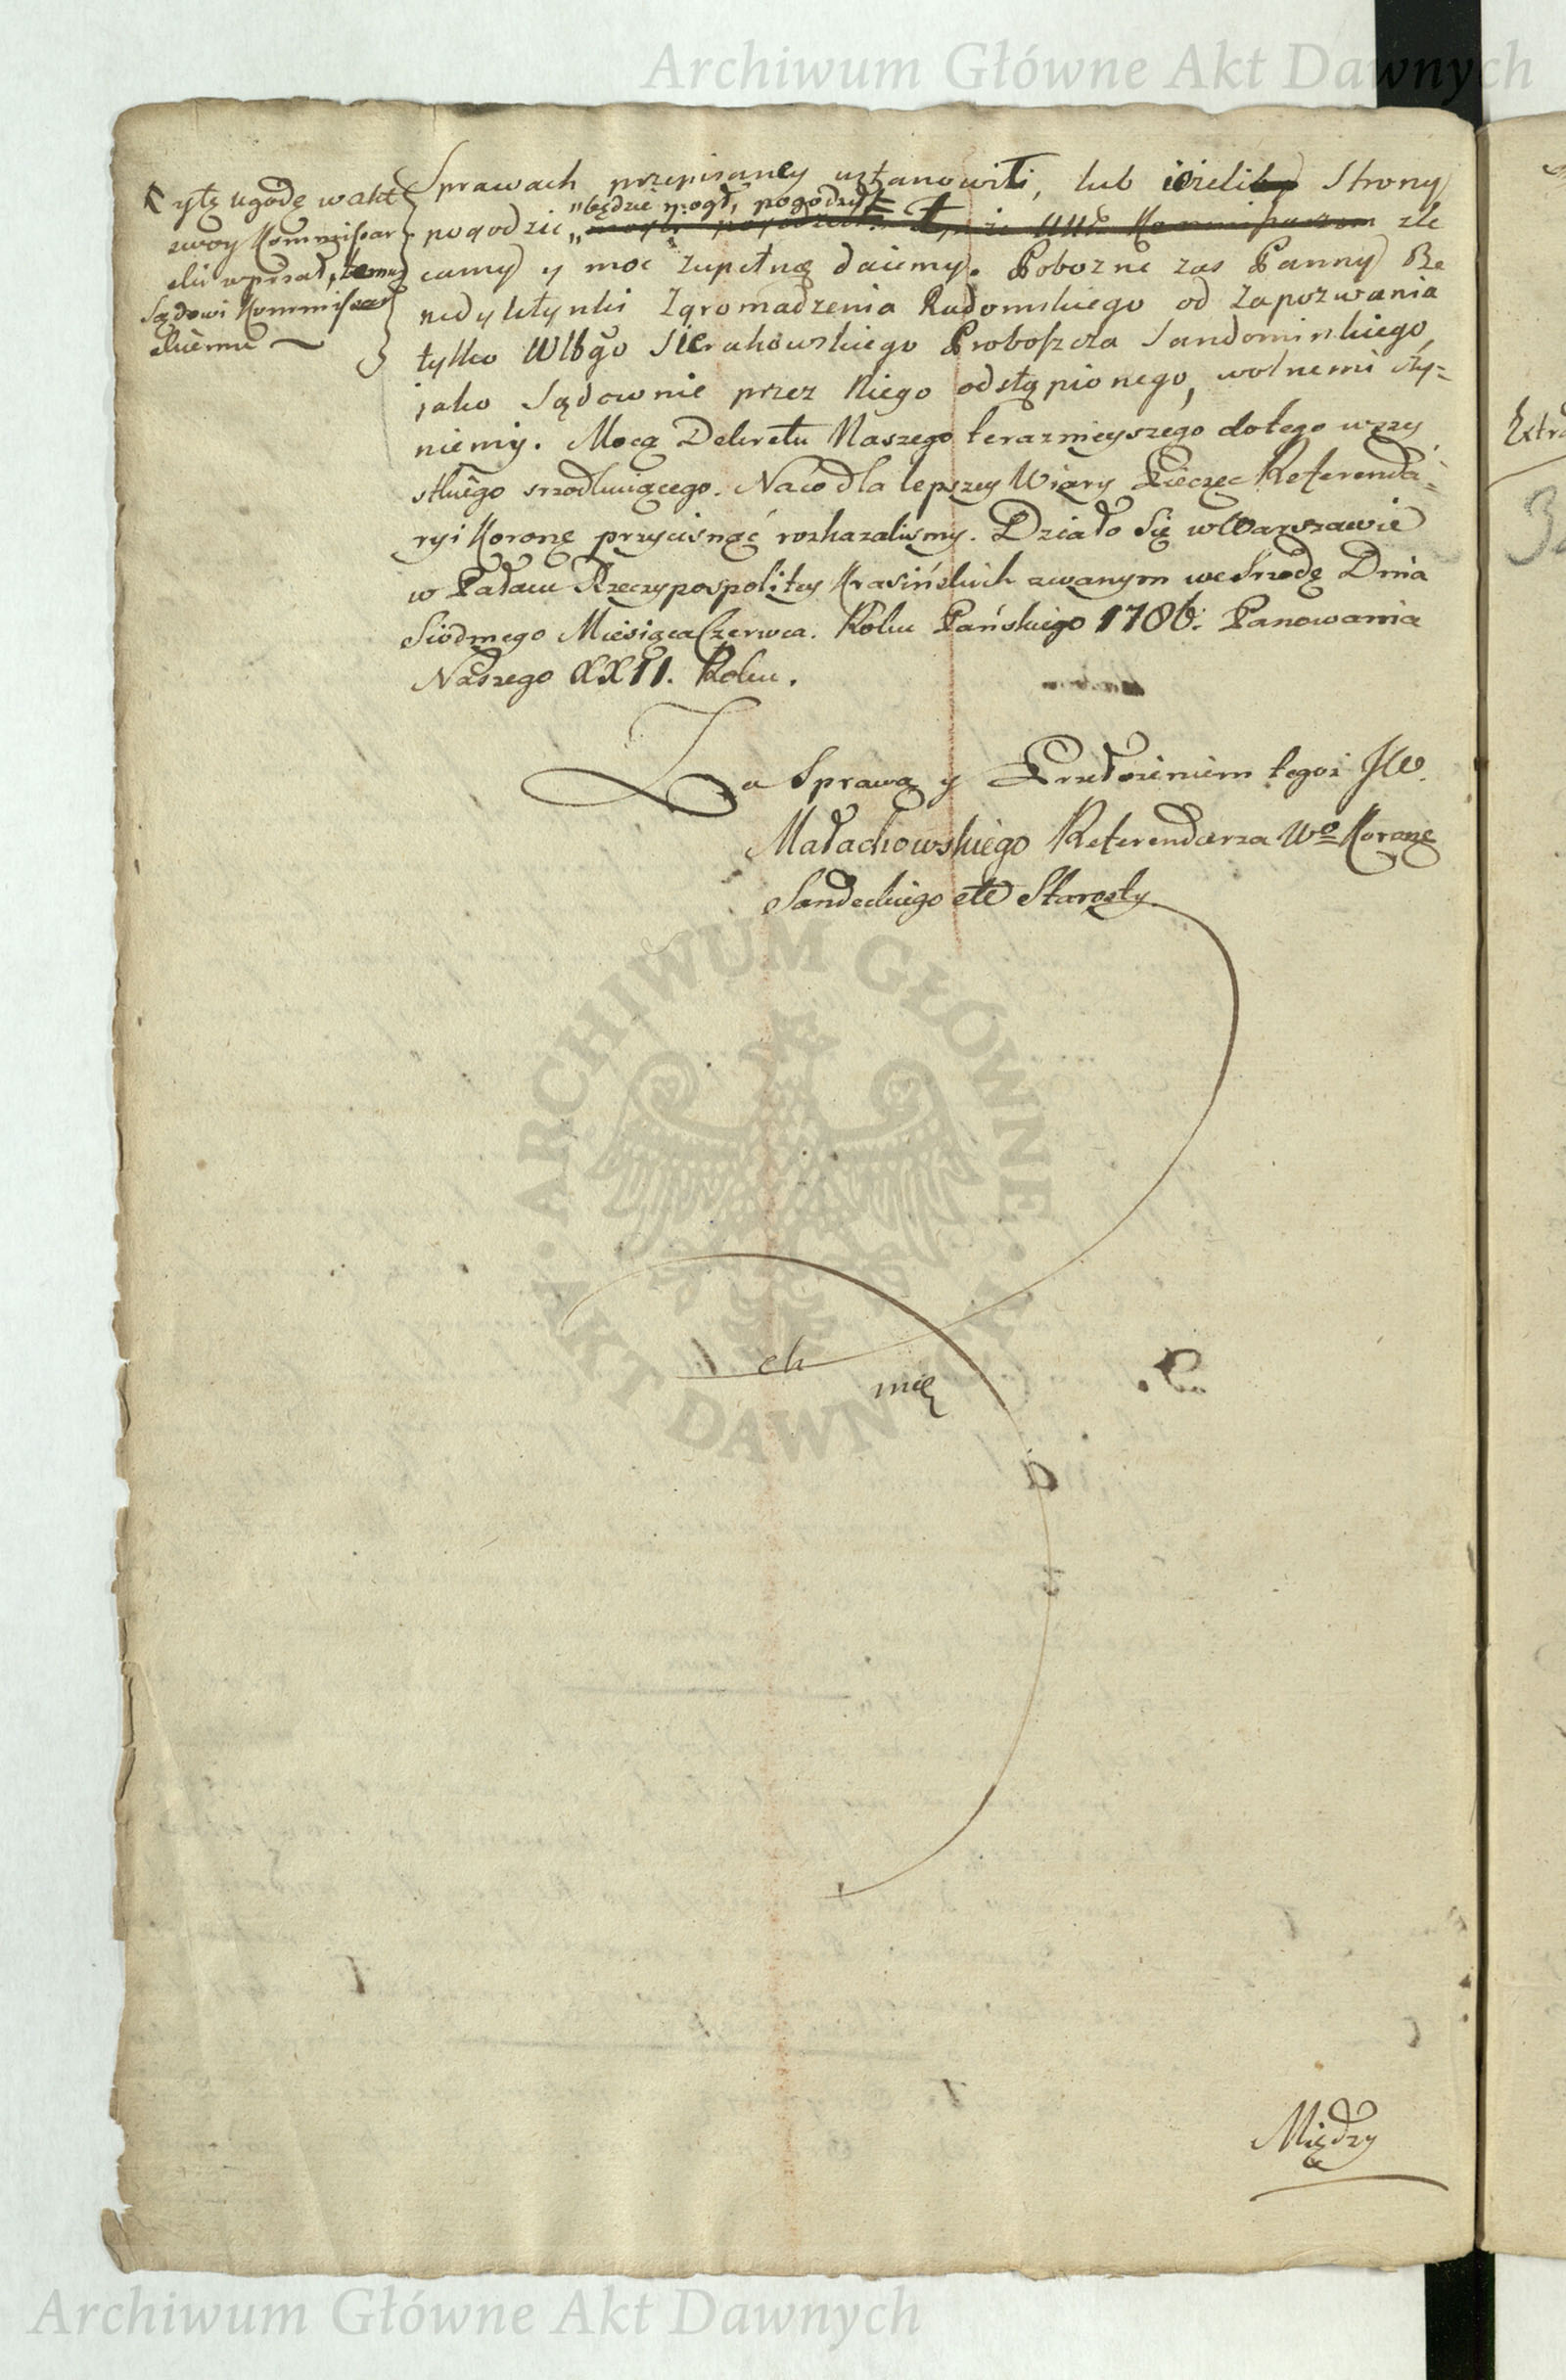 Archiwum Główne Akt Dawnych
y tę ugodę w akt
swoy Kommissar
ski wpisał, temuż
Sądowi Kommissar
skiemu
Sprawach przepisaney ustanowili, lub ieżeli Strony
"będzie mogł, pogodził
pogodzić zle
camy y moc zupełną daiemy. Pobożne zas Panny Be
nedyktynki Zgromadzenia Radomskiego od Zapozwania
tylko Wlbgo Sierakowskiego Proboszcza Sandomirskiego,
jako Sądownie przez Niego odstąpionego, wolnemi czy=
niemy. Mocą Dekretu Naszego terazmieyszego dotego wszy
stkiego srzodkuiącego. Naco dla lepszey Wiary Pieczęc Referenda=
ryi Koronę przycisnąć rozkazalismy. Działo Się w Warszawie
w Pałacu Rzeczypospolitey Krasińskich zwanym we Srzodę Dnia
Siodmego Miesiąca Czerwca. Roku Pańskiego 1786. Panowania
Naszego XXII. Roku.
Za Sprawą y Przełożeniem tegoż JW.
Małachowskiego Referendarza Wo Koronę
Sandeckiego etc Starosty
ARCHIWUM GŁÓWNE
AKT DAWNYCH
mię
Między
Extra
Archiwum Główne Akt Dawnych